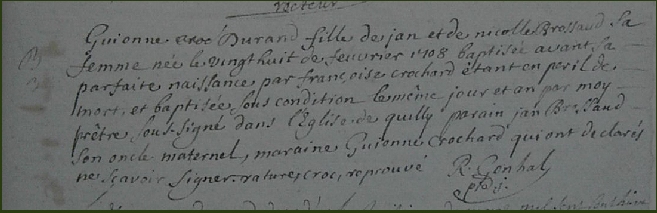 recteur
B
Guionne croc Durand fille de jan et de nicolle Brossaud sa
femme née le vingt huit de feuvrier 1708 baptisée avant sa
parfaite naissance par françoise crochard étant en peril de
mort, et baptisée sous condition le même jour et an par moy
prêtre sous-signé dans l'Eglise de quilly parain jan Brossaud
son oncle maternel, maraine Guionne Crochard qui ont declarés
ne sçavoir signer. rature, croc, reprouvé R. Gonhal